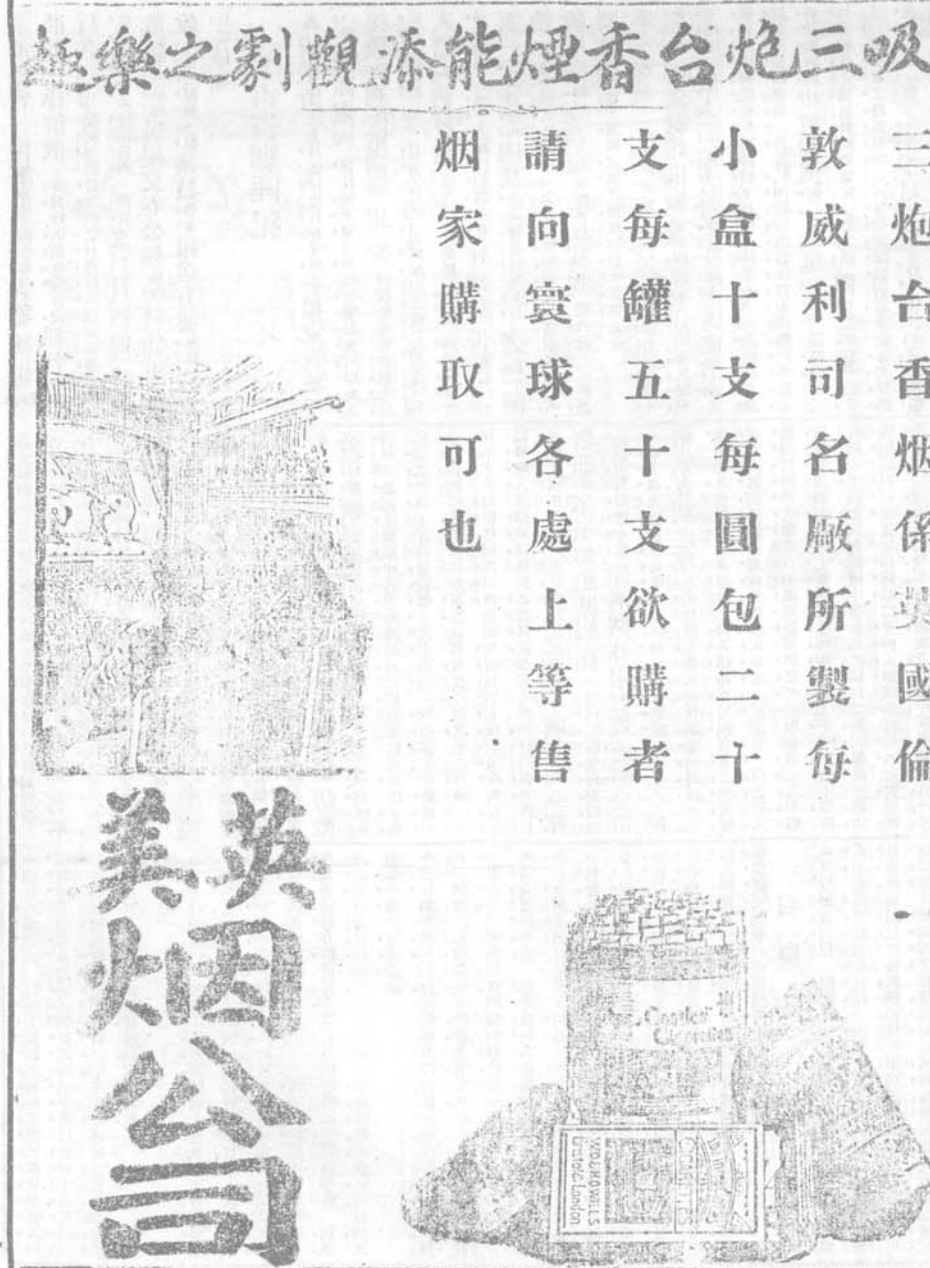 吸三炮台香煙能添觀劇之樂趣
三炮台香烟係英國倫
敦威利司名厰所製每
小盒十支每圓包二十
支每罐五十支欲購者
請向寰球各處上等售
烟家購取可也
英美
烟公司
Castles
Cigarettes
CIGARETTES
W.D.& H.O.WILLS
Bristol & London